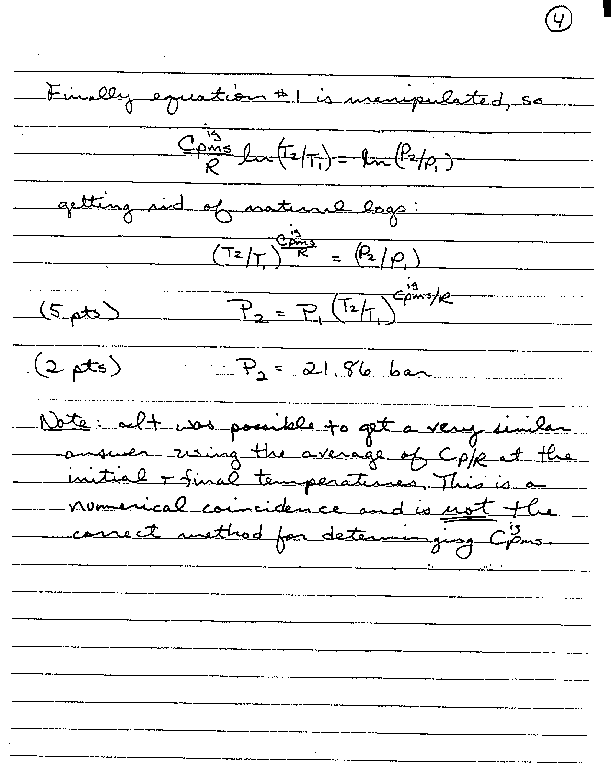 4
Finally equation #1 is manipulated, so
Cpms^ig/R ln(T2/T1) = ln(P2/P1)
getting rid of natural logs:
(T2/T1)^(Cpms^ig/R) = (P2/P1)
(5 pts) P2 = P1 (T2/T1)^(Cpms^ig/R)
(2 pts) P2 = 21.86 bar
Note: It was possible to get a very similar
answer using the average of Cp/R at the
initial + final temperatures. This is a
numerical coincidence and is not the
correct method for determinging Cpms^ig.